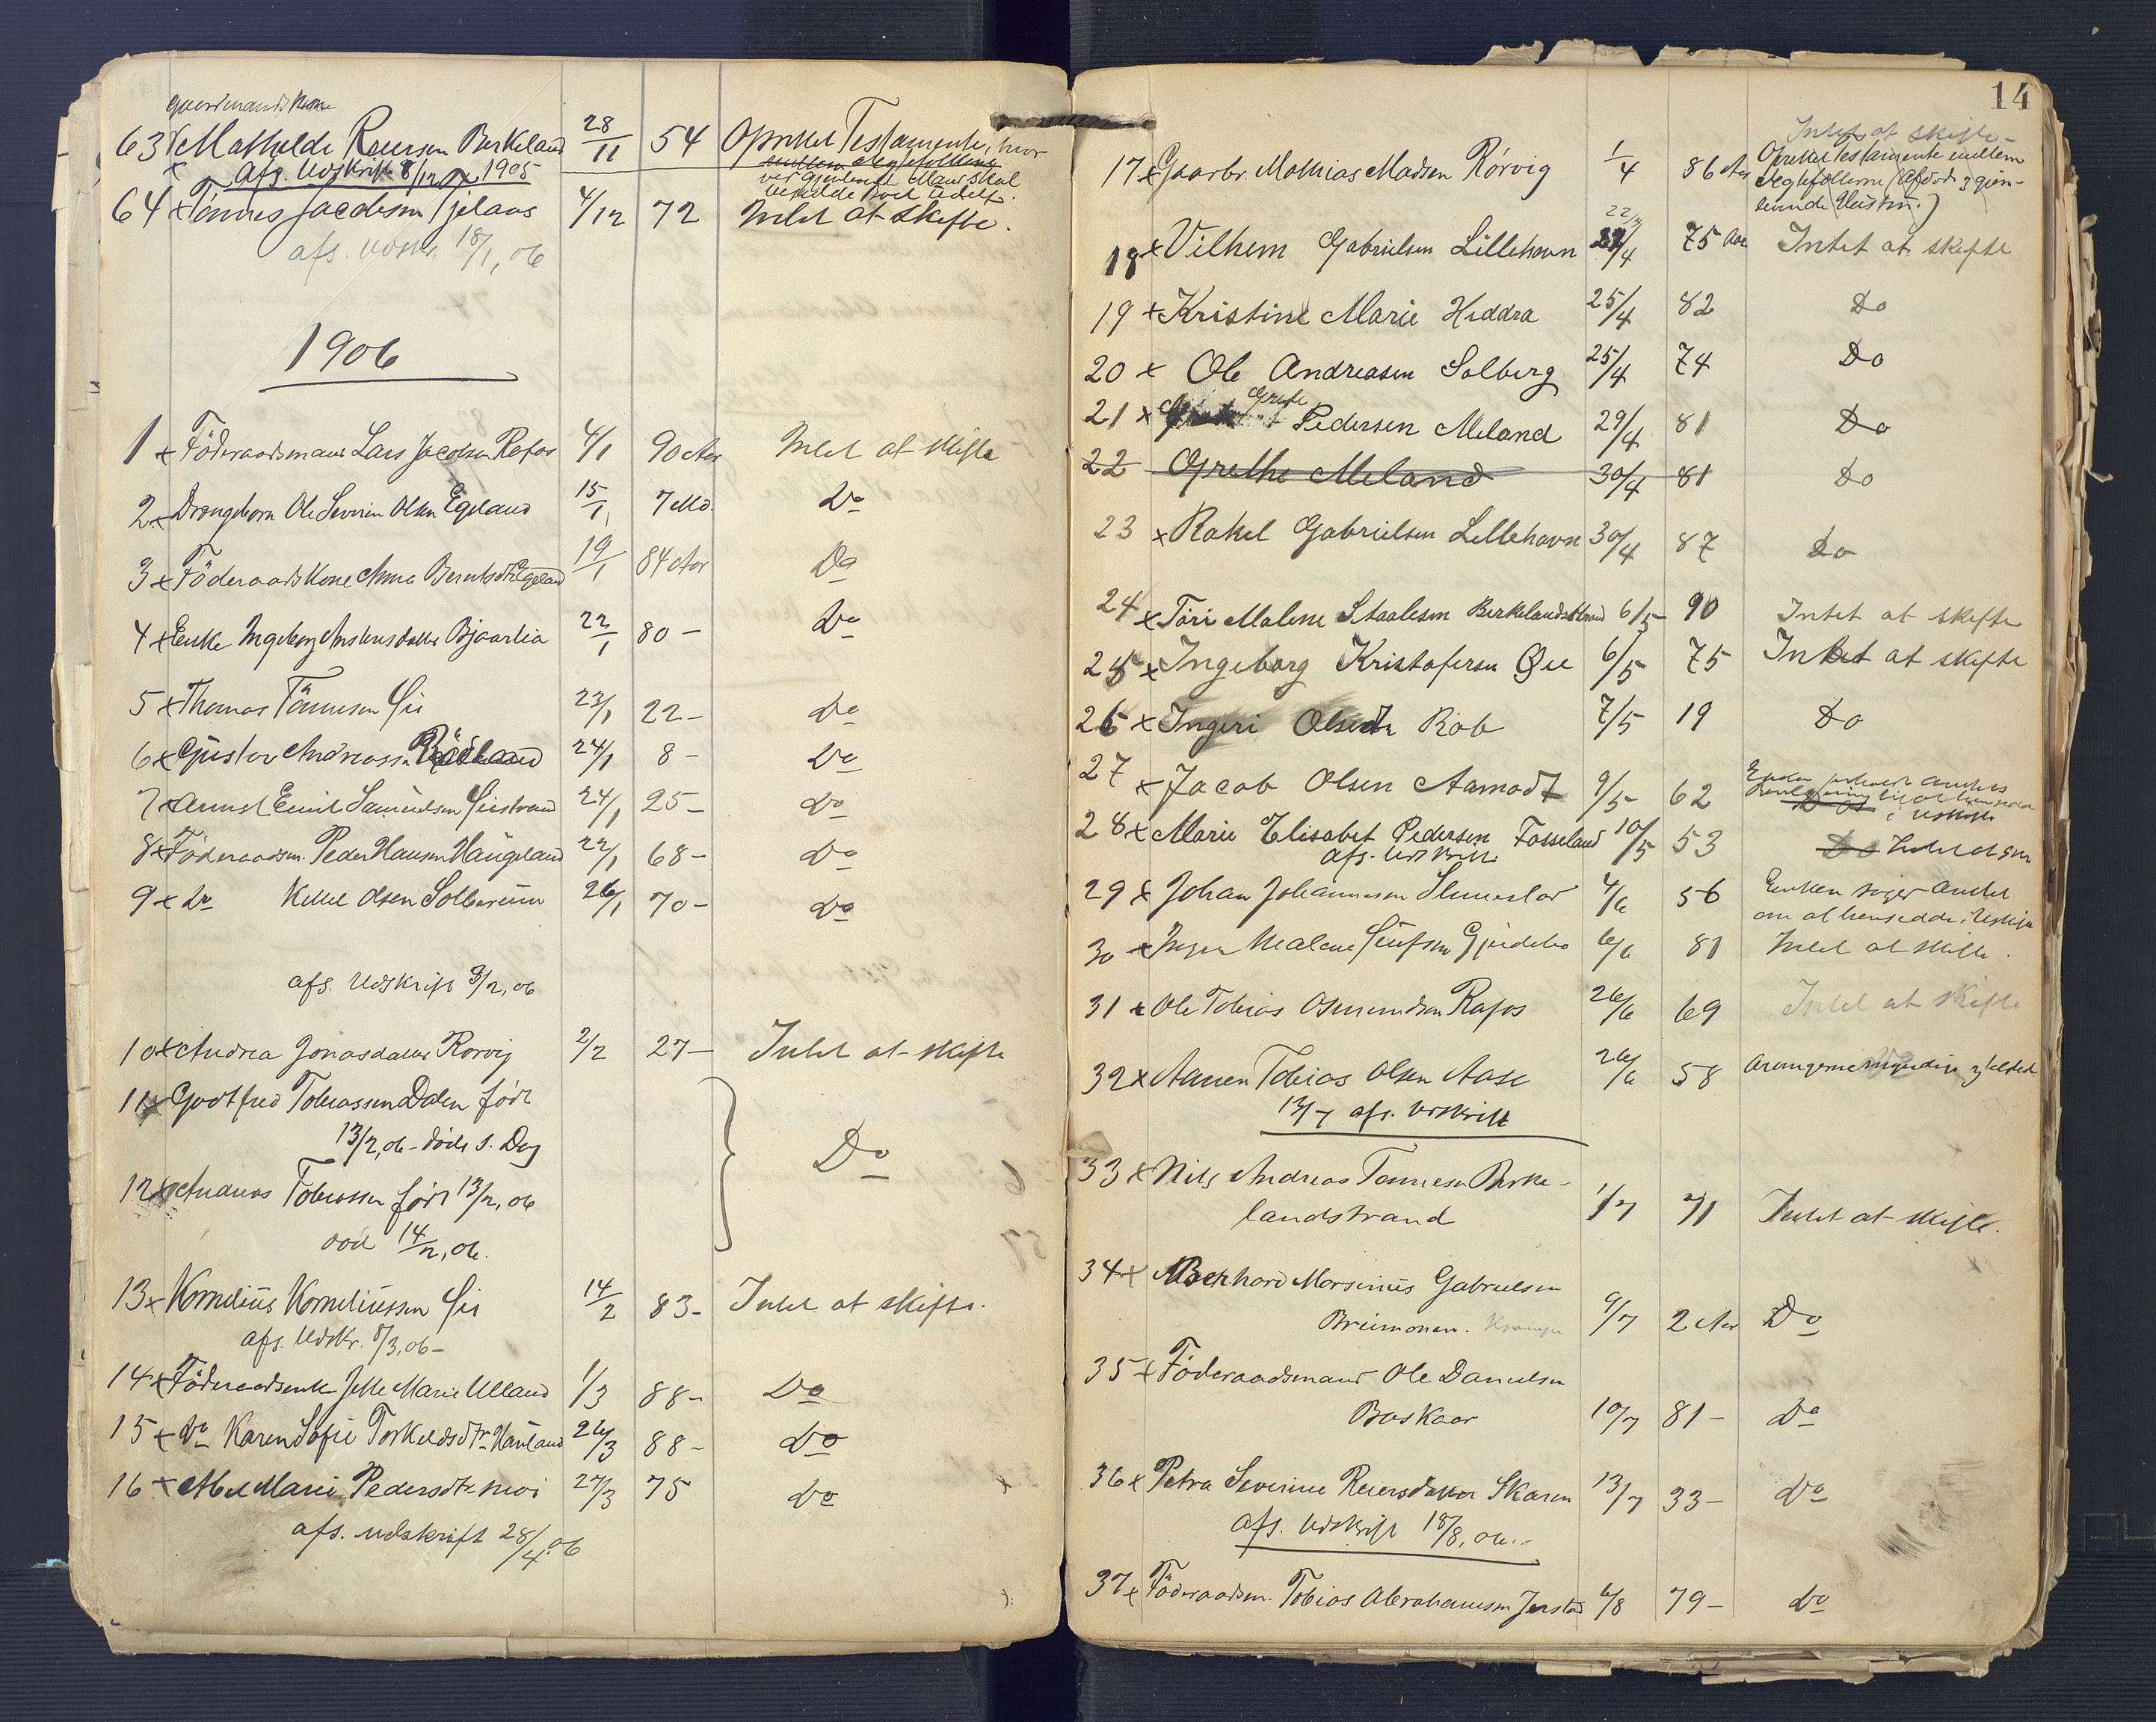 Gaardmandskone
63 Mathilde Reiersen Birkeland 28/11 54 Oprettet Testamente, hvor
x Afs. Udskrift 8/12 1905
64 x Tønnes Jacobsen 4/12 72 Intet at skifte.
afs. Udskr. 18/1, 06
1906
1 x Föderaadsmand Lars Jacobsen Rafos 4/1 90 Aar Intet at skifte
2 x Drengebarn Ole Severin Olsen Egeland 15/1 7 Md. Do
3 x Föderaadskone Anna Berntsdtr Egeland 19/1 84 Aar Do
4 x Enke Ingeborg 22/1 80 - Do
5 x Thomas Tönnesen 23/1 22 - Do
6 x Gustav Andreassn 24/1 8 - Do
7 x Emil Samuelsen 24/1 25 - Do
8 x Föderaadsm. Peder Hansen Haugeland 22/1 68 - Do
9 x Do Olsen 26/1 70 - Do
afs. Udskrift 3/2, 06
10 x Andrea Jonasdatter Rorvig 2/2 27 - Intet at skifte
11 x Godtfred Tobiassen Dalen født
13/2, 06 - døde s. Dag Do
12 x Andreas Tobiassen født 13/2, 06
død 14/2, 06.
13 x Kornelius Korneliussen 14/2 83 - Intet at skifte.
afs. Udskr. 8/3, 06 -
14 x Föderaadsenke Marie Ulland 1/3 88 - Do
15 x Do Karen Sofie Torkeldsdtr 26/3 88 - Do
16 x Marie Pedersdtr 27/3 75 Do
afs. udskrift 28/4 06
14
Intet at skifte -
17 x Gaarbr. Mathias Madsen Rörvig 1/4 86 Aar Oprettet Testamente mellem
Ægtefællerne
18 x Vilhem Gabrielsen Lillehavn 22/4 75 Aar Intet at skifte
19 x Kristine Marie Hiddra 25/4 82 Do
20 x Ole Andreasen Solberg 25/4 74 Do
Grete
21 x Pedersen Meland 29/4 81 Do
22 Grethe Meland 30/4 81 Do
23 x Rakel Gabrielsen Lillehavn 30/4 87 Do
24 x Töri Malene Staalesen Birkelandsstrand 6/5 90 Intet at skifte
25 x Ingeborg Kristofersen 6/5 75 Intet at skifte
26 x Ingeri Olsdtr Rob 7/5 19 Do
27 x Jacob Olsen Aamodt 9/5 62
28 x Marie Elisabet Pedersen Fosseland 10/5 53 Do
afs. Udskrift
29 x Johan Johannessen 4/6 56 Enken søger Amtet
om at hensidde i Uskifte
30 x Malene 6/6 81 Intet at skifte.
31 x Ole Tobias Osmundsen Rafos 26/6 69 Intet at skifte
32 x Aanen Tobias Olsen Aase 26/6 58 Arvingerne myndige
13/7 afs. Udskrift
33 x Nils Andreas Tønnesen Birke-
landstrand 1/7 71 Intet at skifte.
34 x Berhard Gabrielsen
9/7 2 Aar Do
35 x Föderaadsmand Ole Danielsen
Buskaar 10/7 81 - Do
36 x Petra Severine Reiersdatter Skaren 13/7 33 - Do
Afs. Udskrift 18/8, 06 -
37 x Föderaadsm. Tobias Abrahamsen 6/8 79 - Do